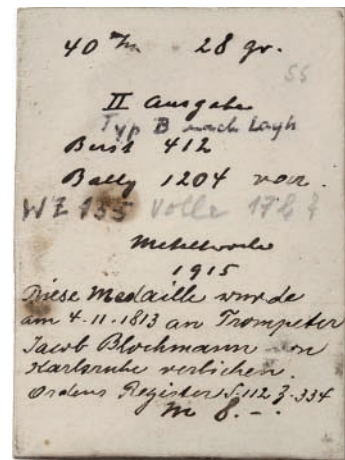 40 m/m 28 gr.
55
II Ausgabe
Typ B nach Layh
412
Bally 1204 var.
WZ 135 Volle 178
1915
Diese Medaille wurde
am 4-11-1813 an Trompeter
Jacob Blochmann von
Karlsruhe verliehen.
Ordens Register S. 112 Z. 334
M 8.-